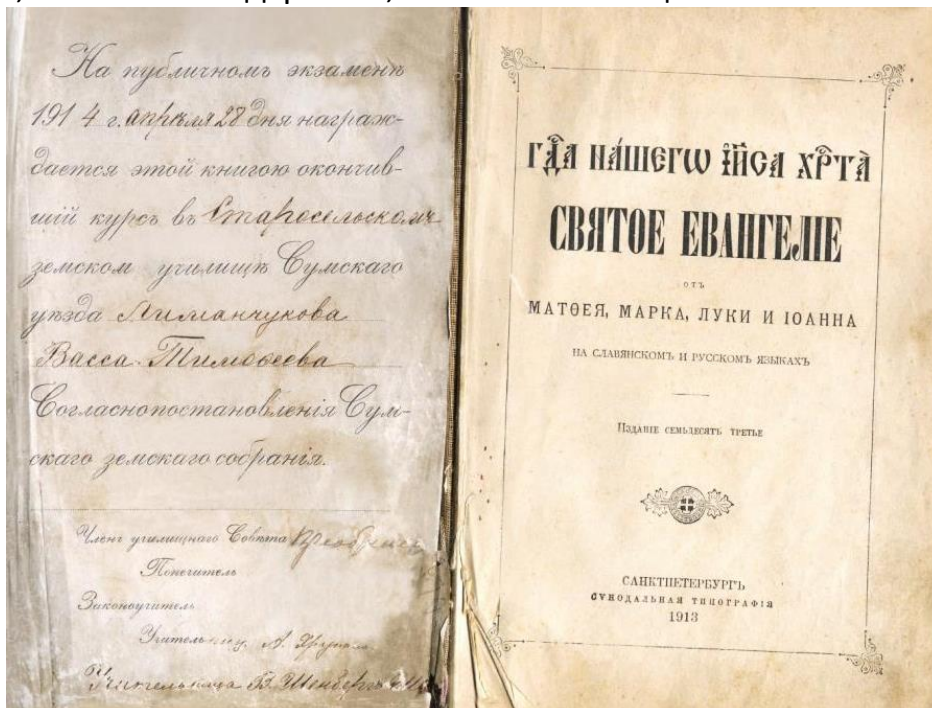 На публичномъ экзаменѣ
1914 г. апрѣля 28 дня награж-
дается этой книгою окончив-
шій курсъ въ Старосельскомъ
земском училищѣ Сумскаго
уѣзда Лиманчукова
Васса Тимовеева
Согласно постановленія Сум-
скаго земскаго собранія.
Членъ училищнаго Совѣта
Попечитель
Законоучитель
Учитель
Учительница В. Шенберг
гдⷭ҇а на́шегѡ і҆и҃са хрⷭ҇та̀
СВЯТОЕ ЕВАНГЕЛІЕ
отъ
МАТѲЕЯ, МАРКА, ЛУКИ И ІОАННА
НА СЛАВЯНСКОМЪ И РУССКОМЪ ЯЗЫКАХЪ
Изданіе семьдесятъ третье
САНКТПЕТЕРБУРГЪ
СѴНОДАЛЬНАЯ ТИПОГРАФІЯ
1913